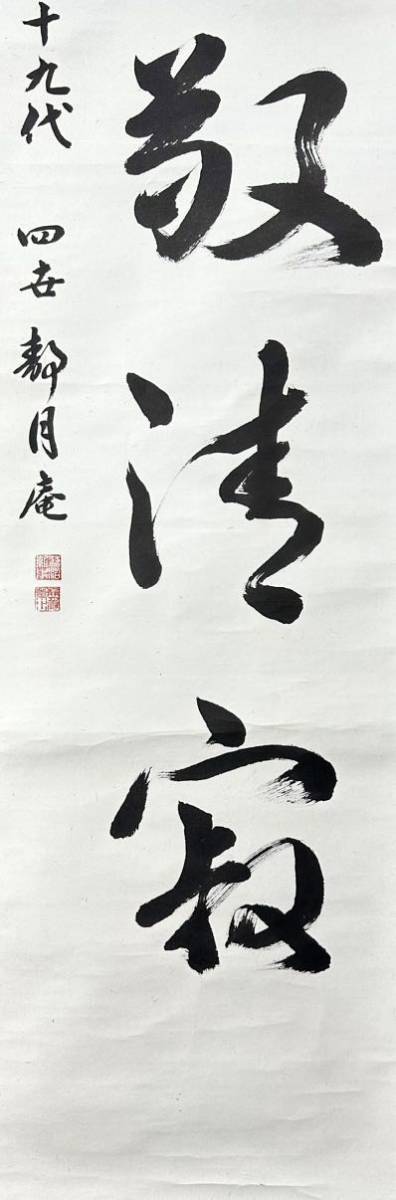 敬清寂
十九代 四世 静月庵